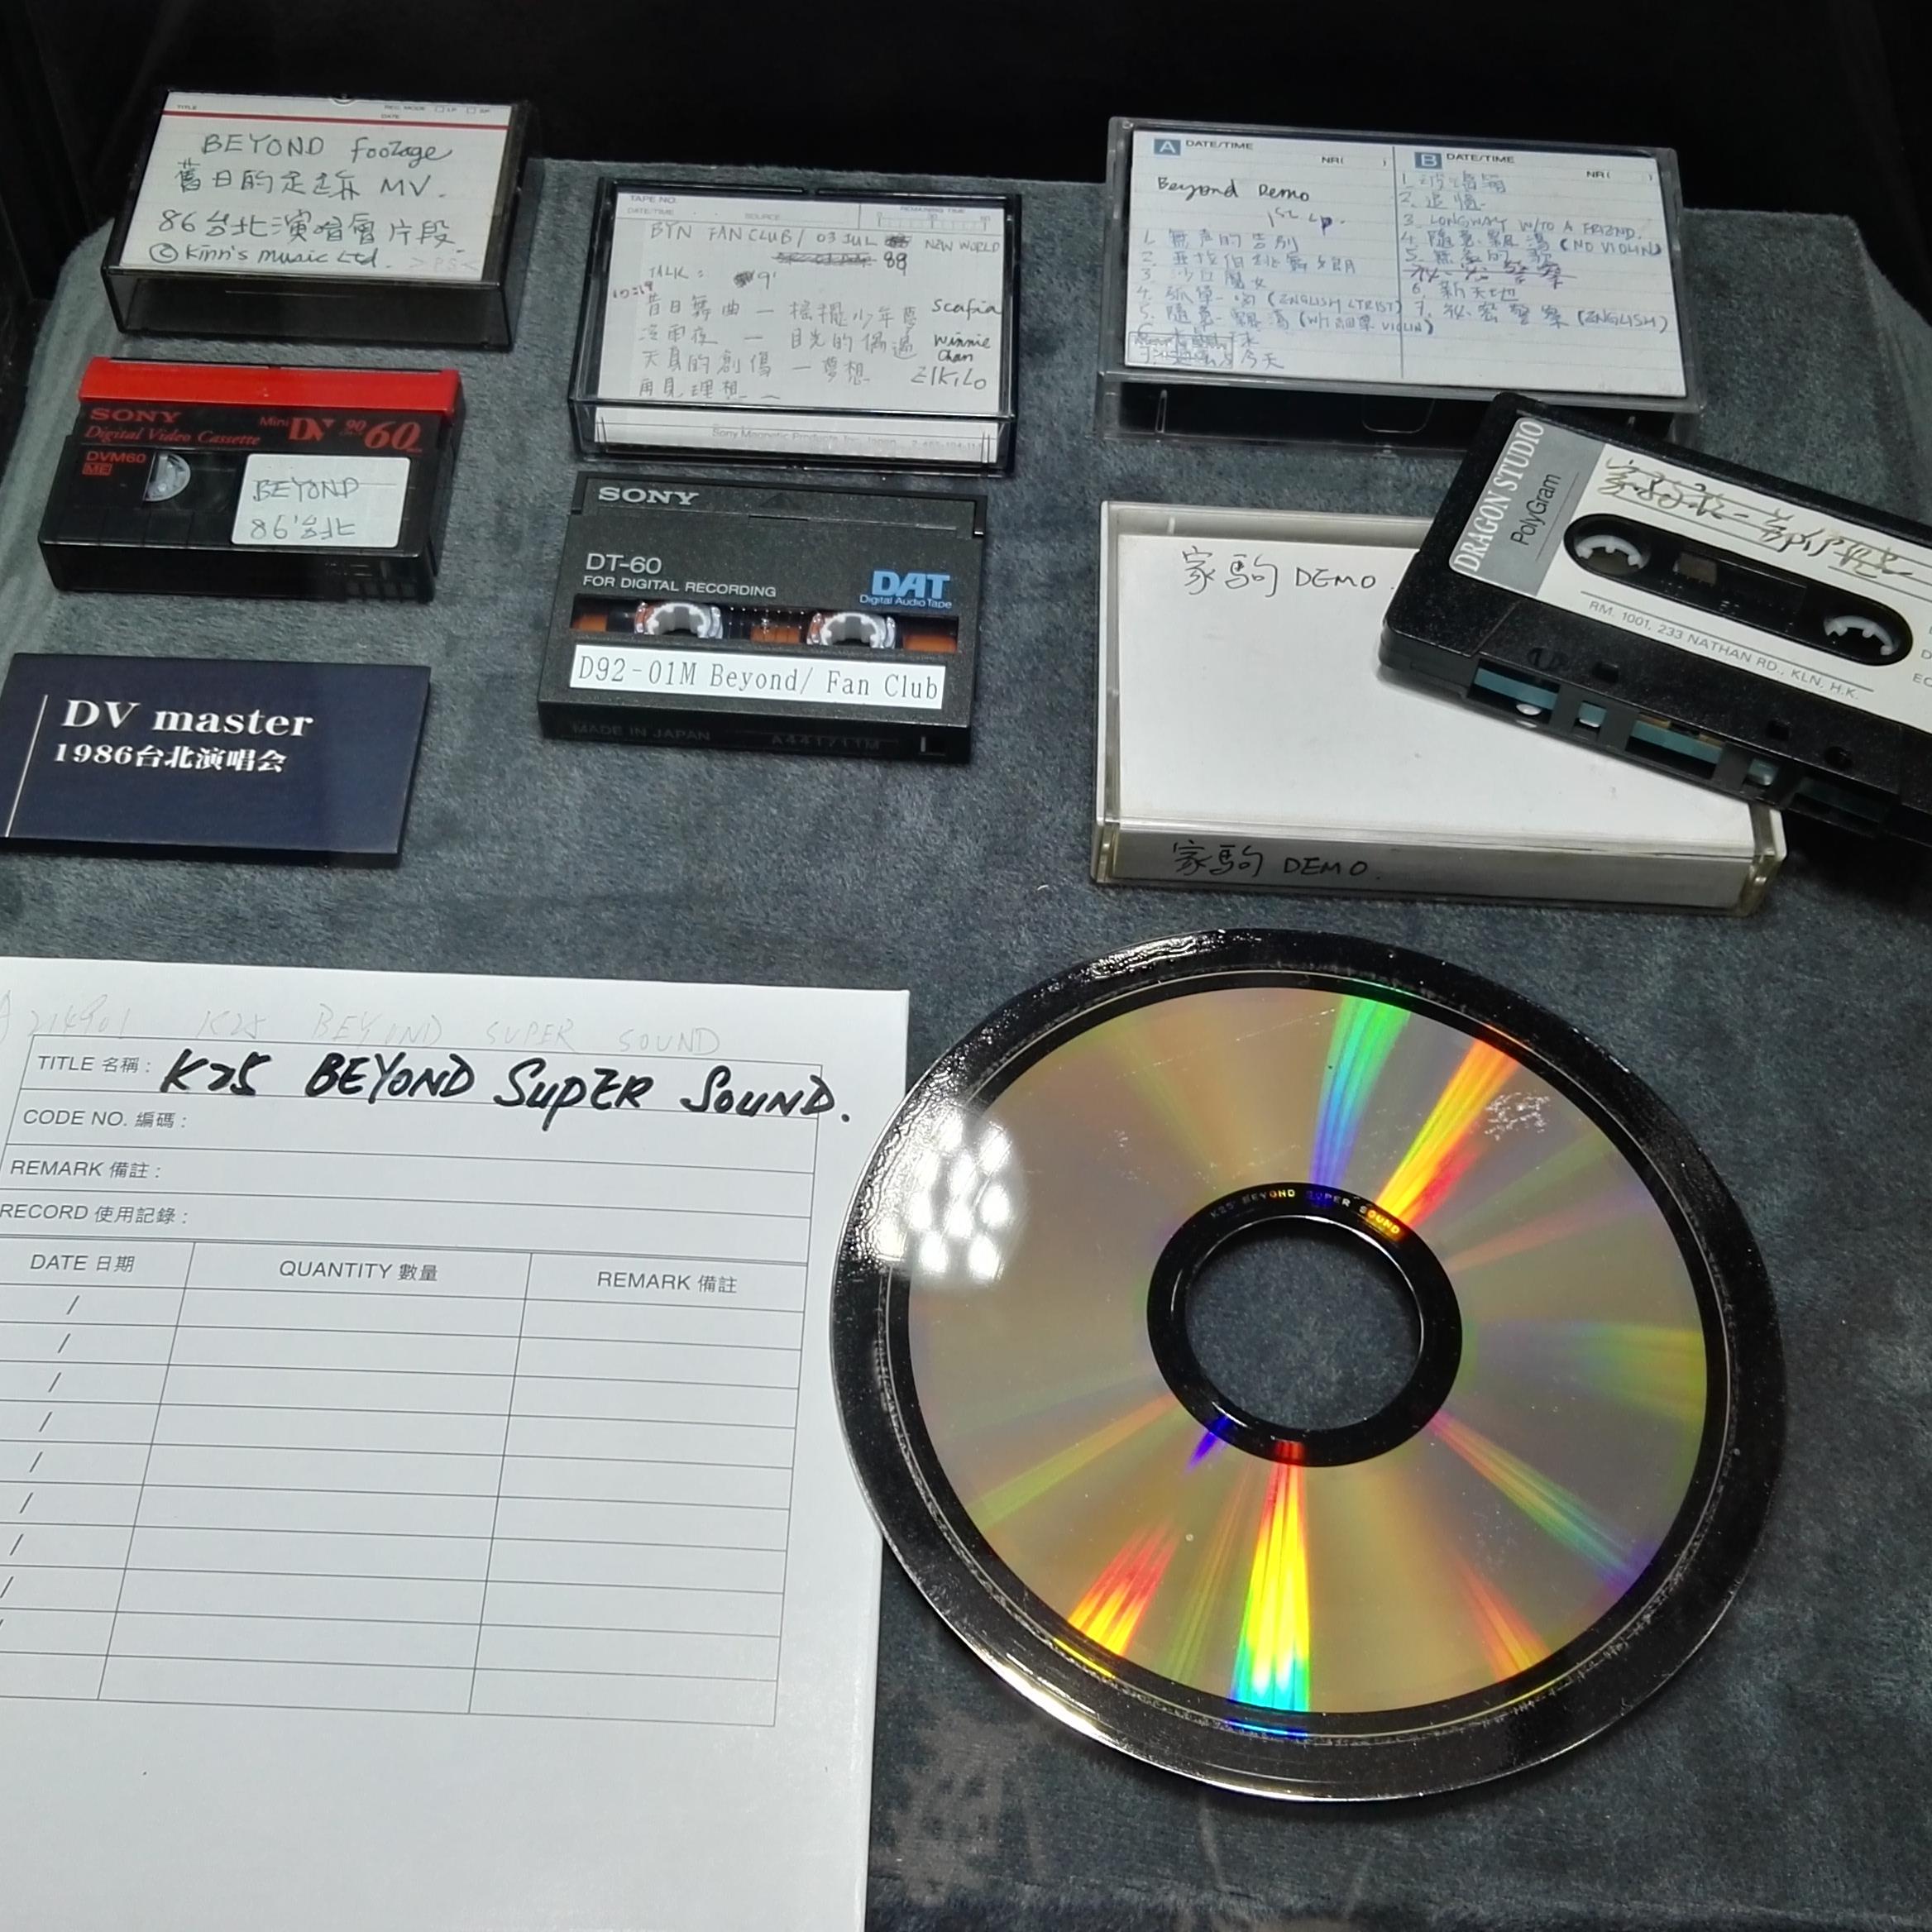 TITLE REC. MODE LP SP
DATE
BEYOND footage
舊日的足跡 MV.
86台北演唱會片段
© Kinn's Music Ltd.
SONY
Digital Video Cassette
Mini DV 90 60
DVM60
ME
BEYOND
86'台北
DV master
1986台北演唱会
TAPE NO.
DATE/TIME SOURCE REMAINING TIME
BYN FAN CLUB / 03 JUL 89 NEW WORLD
TALK :
昔日舞曲 — 搖擺少年愿
冷雨夜 — 目光的偶遇 Winnie
Chan
天真的創傷 — 夢想
Sony Magnetic Products Inc. Japan
SONY
DT-60
FOR DIGITAL RECORDING
DAT
Digital Audio Tape
D92-01M Beyond/ Fan Club
MADE IN JAPAN A441711M
A DATE/TIME
NR( )
Beyond Demo
1st Lp.
1. 無声的告別
3. 沙丘魔女
4. 孤單一吻 (ENGLISH LYRIST)
5. 隨意飄蕩 (WITH VIOLIN)
今天
B DATE/TIME
NR( )
2. 追憶
3. LONGWAY W/TO A FRIEND
4. 隨意飄蕩 (NO VIOLIN)
6. 新天地
7. 秘密警察 (ENGLISH)
DRAGON STUDIO
PolyGram
RM. 1001, 233 NATHAN RD., KLN, H.K.
家駒 DEMO.
家駒 DEMO.
214901 K25 BEYOND SUPER SOUND
TITLE 名稱 : K25 BEYOND SUPER SOUND.
CODE NO. 編碼 :
REMARK 備註 :
RECORD 使用記錄 :
DATE 日期 QUANTITY 數量 REMARK 備註
/
/
/
/
/
/
/
/
K25' BEYOND SUPER SOUND